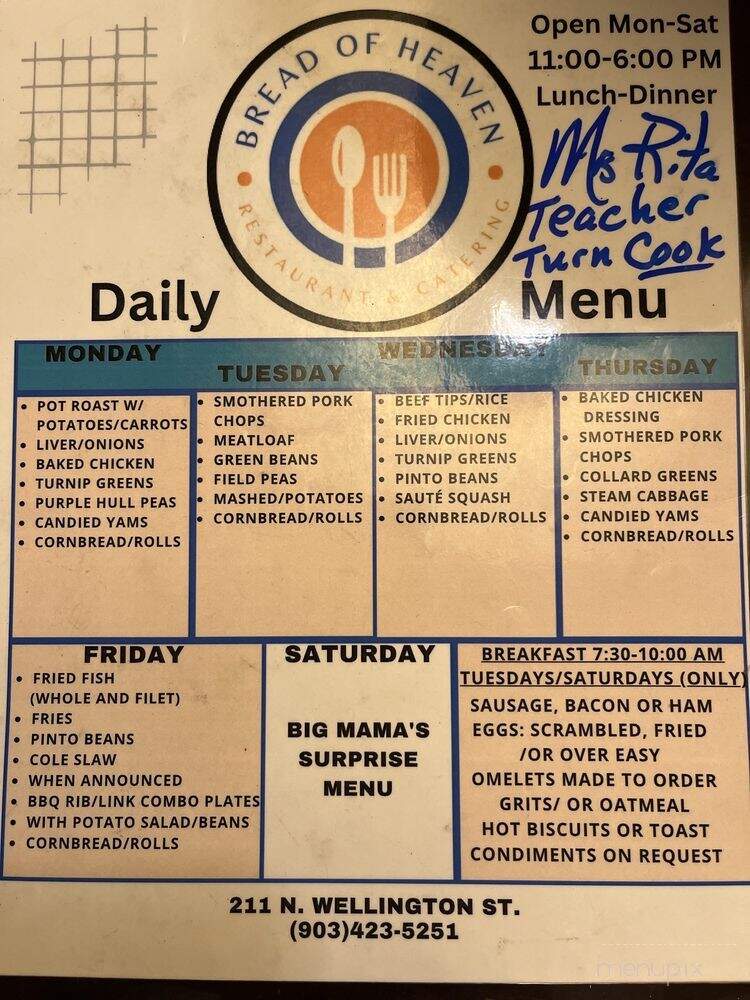 BREAD OF HEAVEN
RESTAURANT & CATERING
Open Mon-Sat
11:00-6:00 PM
Lunch-Dinner
Ms Rita
Teacher
Turn Cook
Daily Menu
MONDAY
• POT ROAST W/
POTATOES/CARROTS
• LIVER/ONIONS
• BAKED CHICKEN
• TURNIP GREENS
• PURPLE HULL PEAS
• CANDIED YAMS
• CORNBREAD/ROLLS
TUESDAY
• SMOTHERED PORK
CHOPS
• MEATLOAF
• GREEN BEANS
• FIELD PEAS
• MASHED/POTATOES
• CORNBREAD/ROLLS
WEDNESDAY
• BEEF TIPS/RICE
• FRIED CHICKEN
• LIVER/ONIONS
• TURNIP GREENS
• PINTO BEANS
• SAUTÉ SQUASH
• CORNBREAD/ROLLS
THURSDAY
• BAKED CHICKEN
DRESSING
• SMOTHERED PORK
CHOPS
• COLLARD GREENS
• STEAM CABBAGE
• CANDIED YAMS
• CORNBREAD/ROLLS
FRIDAY
• FRIED FISH
(WHOLE AND FILET)
• FRIES
• PINTO BEANS
• COLE SLAW
• WHEN ANNOUNCED
• BBQ RIB/LINK COMBO PLATES
• WITH POTATO SALAD/BEANS
• CORNBREAD/ROLLS
SATURDAY
BIG MAMA'S
SURPRISE
MENU
BREAKFAST 7:30-10:00 AM
TUESDAYS/SATURDAYS (ONLY)
SAUSAGE, BACON OR HAM
EGGS: SCRAMBLED, FRIED
/OR OVER EASY
OMELETS MADE TO ORDER
GRITS/ OR OATMEAL
HOT BISCUITS OR TOAST
CONDIMENTS ON REQUEST
211 N. WELLINGTON ST.
(903)423-5251
menupix